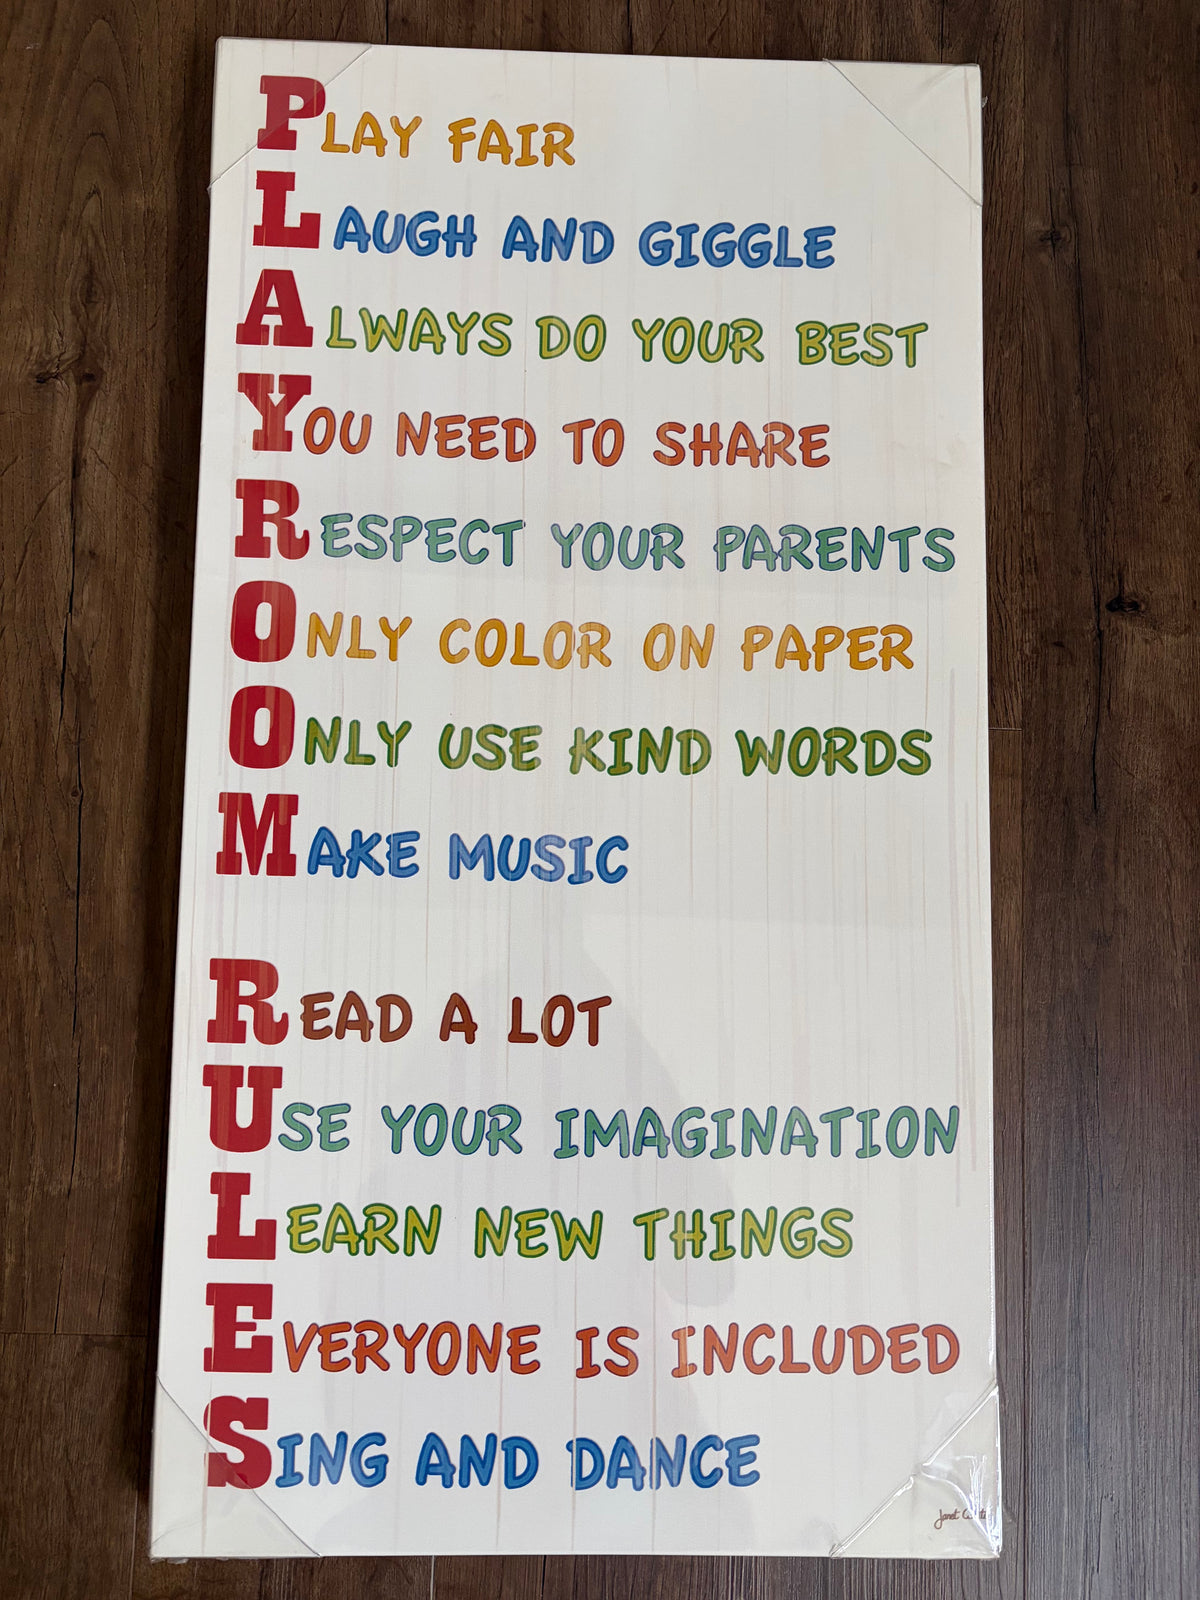 PLAY FAIR
LAUGH AND GIGGLE
ALWAYS DO YOUR BEST
YOU NEED TO SHARE
RESPECT YOUR PARENTS
ONLY COLOR ON PAPER
ONLY USE KIND WORDS
MAKE MUSIC
READ A LOT
USE YOUR IMAGINATION
LEARN NEW THINGS
EVERYONE IS INCLUDED
SING AND DANCE
Janet